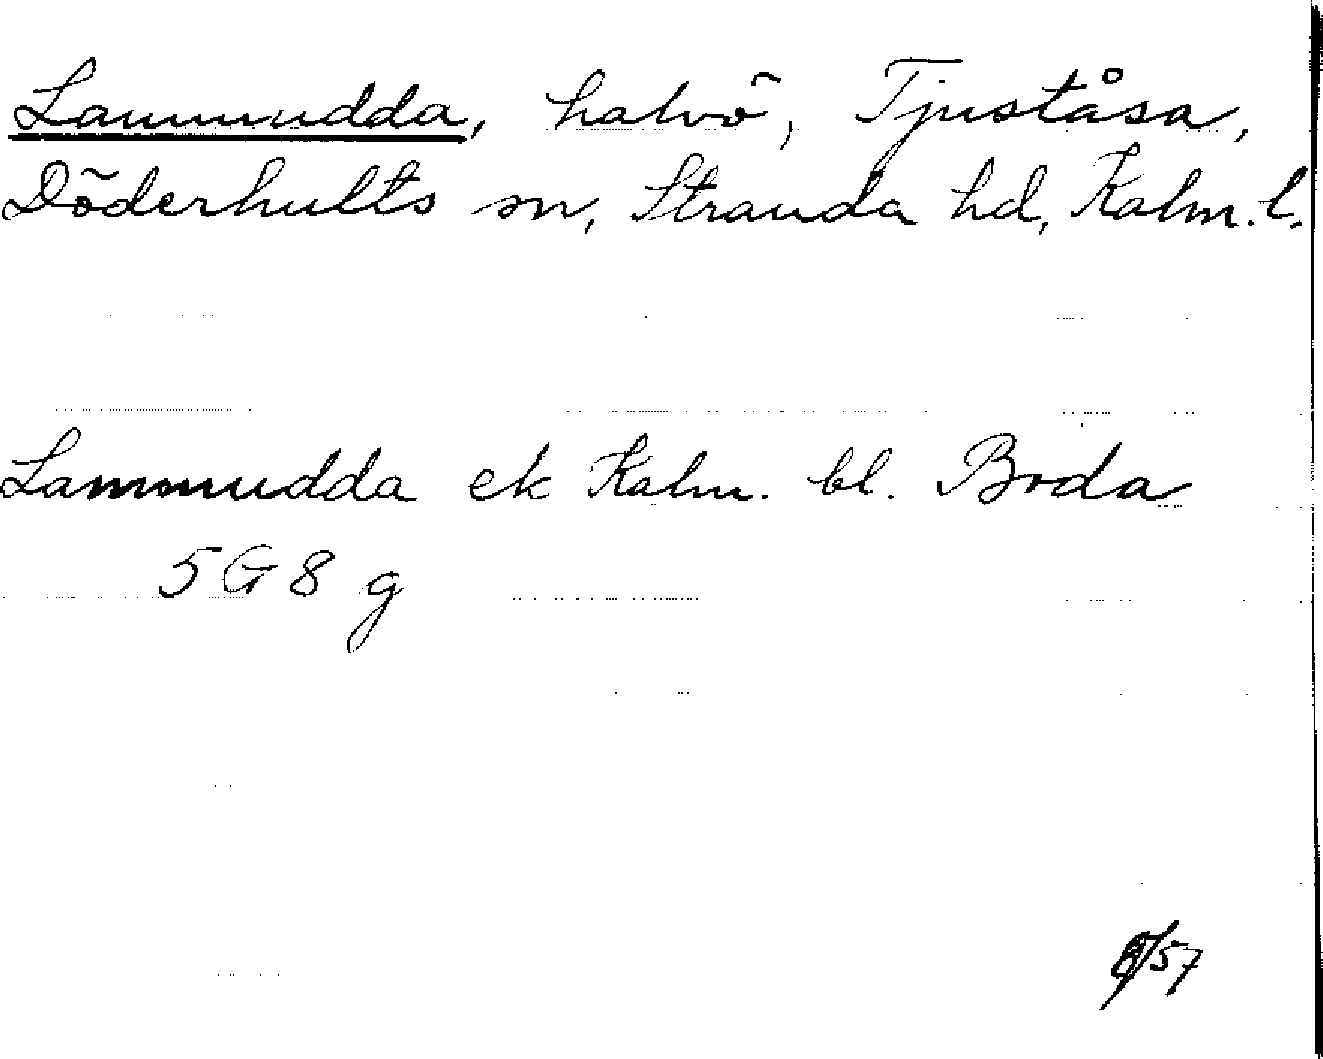 Lammudda, halvö, Tjuståsa,
Döderhults sn, Stranda hd, Kalm. l.
Lammudda ek Kalm. bl. Boda
5 G 8 g
/57